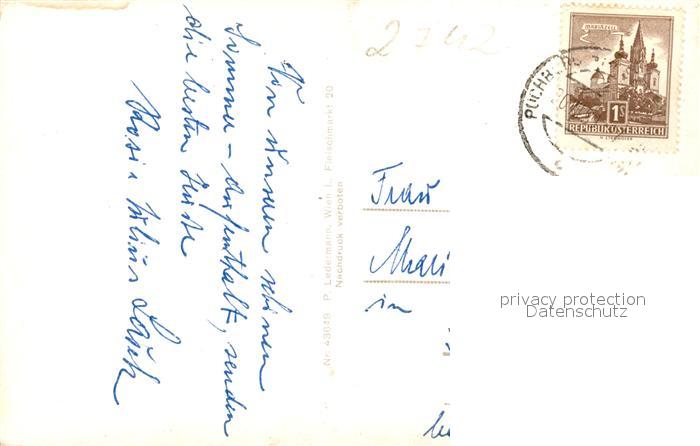 2742
Von unserem schönen
Sommer-Aufenthalt, senden
die besten Grüße
Nr. 43649 P. Ledermann, Wien I., Fleischmarkt 20
Nachdruck verboten
MARIAZELL
1S
REPUBLIK ÖSTERREICH
PUCHBERG
Frau
Mari
in
privacy protection
Datenschutz